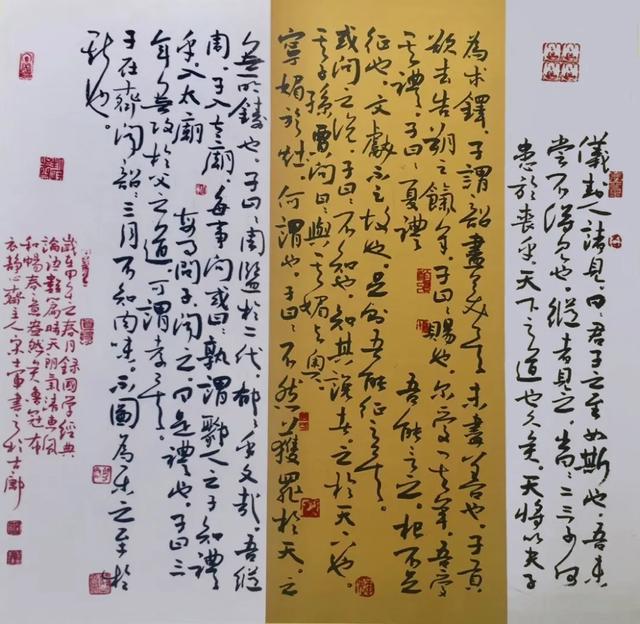 儀封人請見、曰、君子之至如斯也、吾未
嘗不得見也、從者見之、出曰、二三子何
患於喪乎、天下之道也久矣、天將以夫子
為木鐸、子謂、韶盡美矣、未盡善也、子貢
欲去告朔之餼羊、子曰、賜也、尔愛其羊、吾愛
其禮、子曰、夏禮 吾能言之、杞不足
征也、文獻不足故也、足則吾能征之矣、
或問之說、子曰、不知也、知其說者、之於天下也、
王孫賈問曰、與其媚與奧、
寧媚於灶、何謂也、子曰、不然、獲罪於天、之
無所禱也、子曰、周監於二代、郁郁乎文哉、吾從
周、子入太廟、每事問、或曰、孰謂鄹人之子知禮
乎、入太廟 每事問、子聞之、曰是禮也、子曰三
年無改於父之道、可謂孝矣、
子在齊聞韶、三月不知肉味、不圖為樂之至於
斯也。
歲在甲午之春月錄國學經典
論語數篇時天朗氣清惠風
和暢春意盎然矣魯冠布
衣靜心齋主人宋士軍書於古鄒